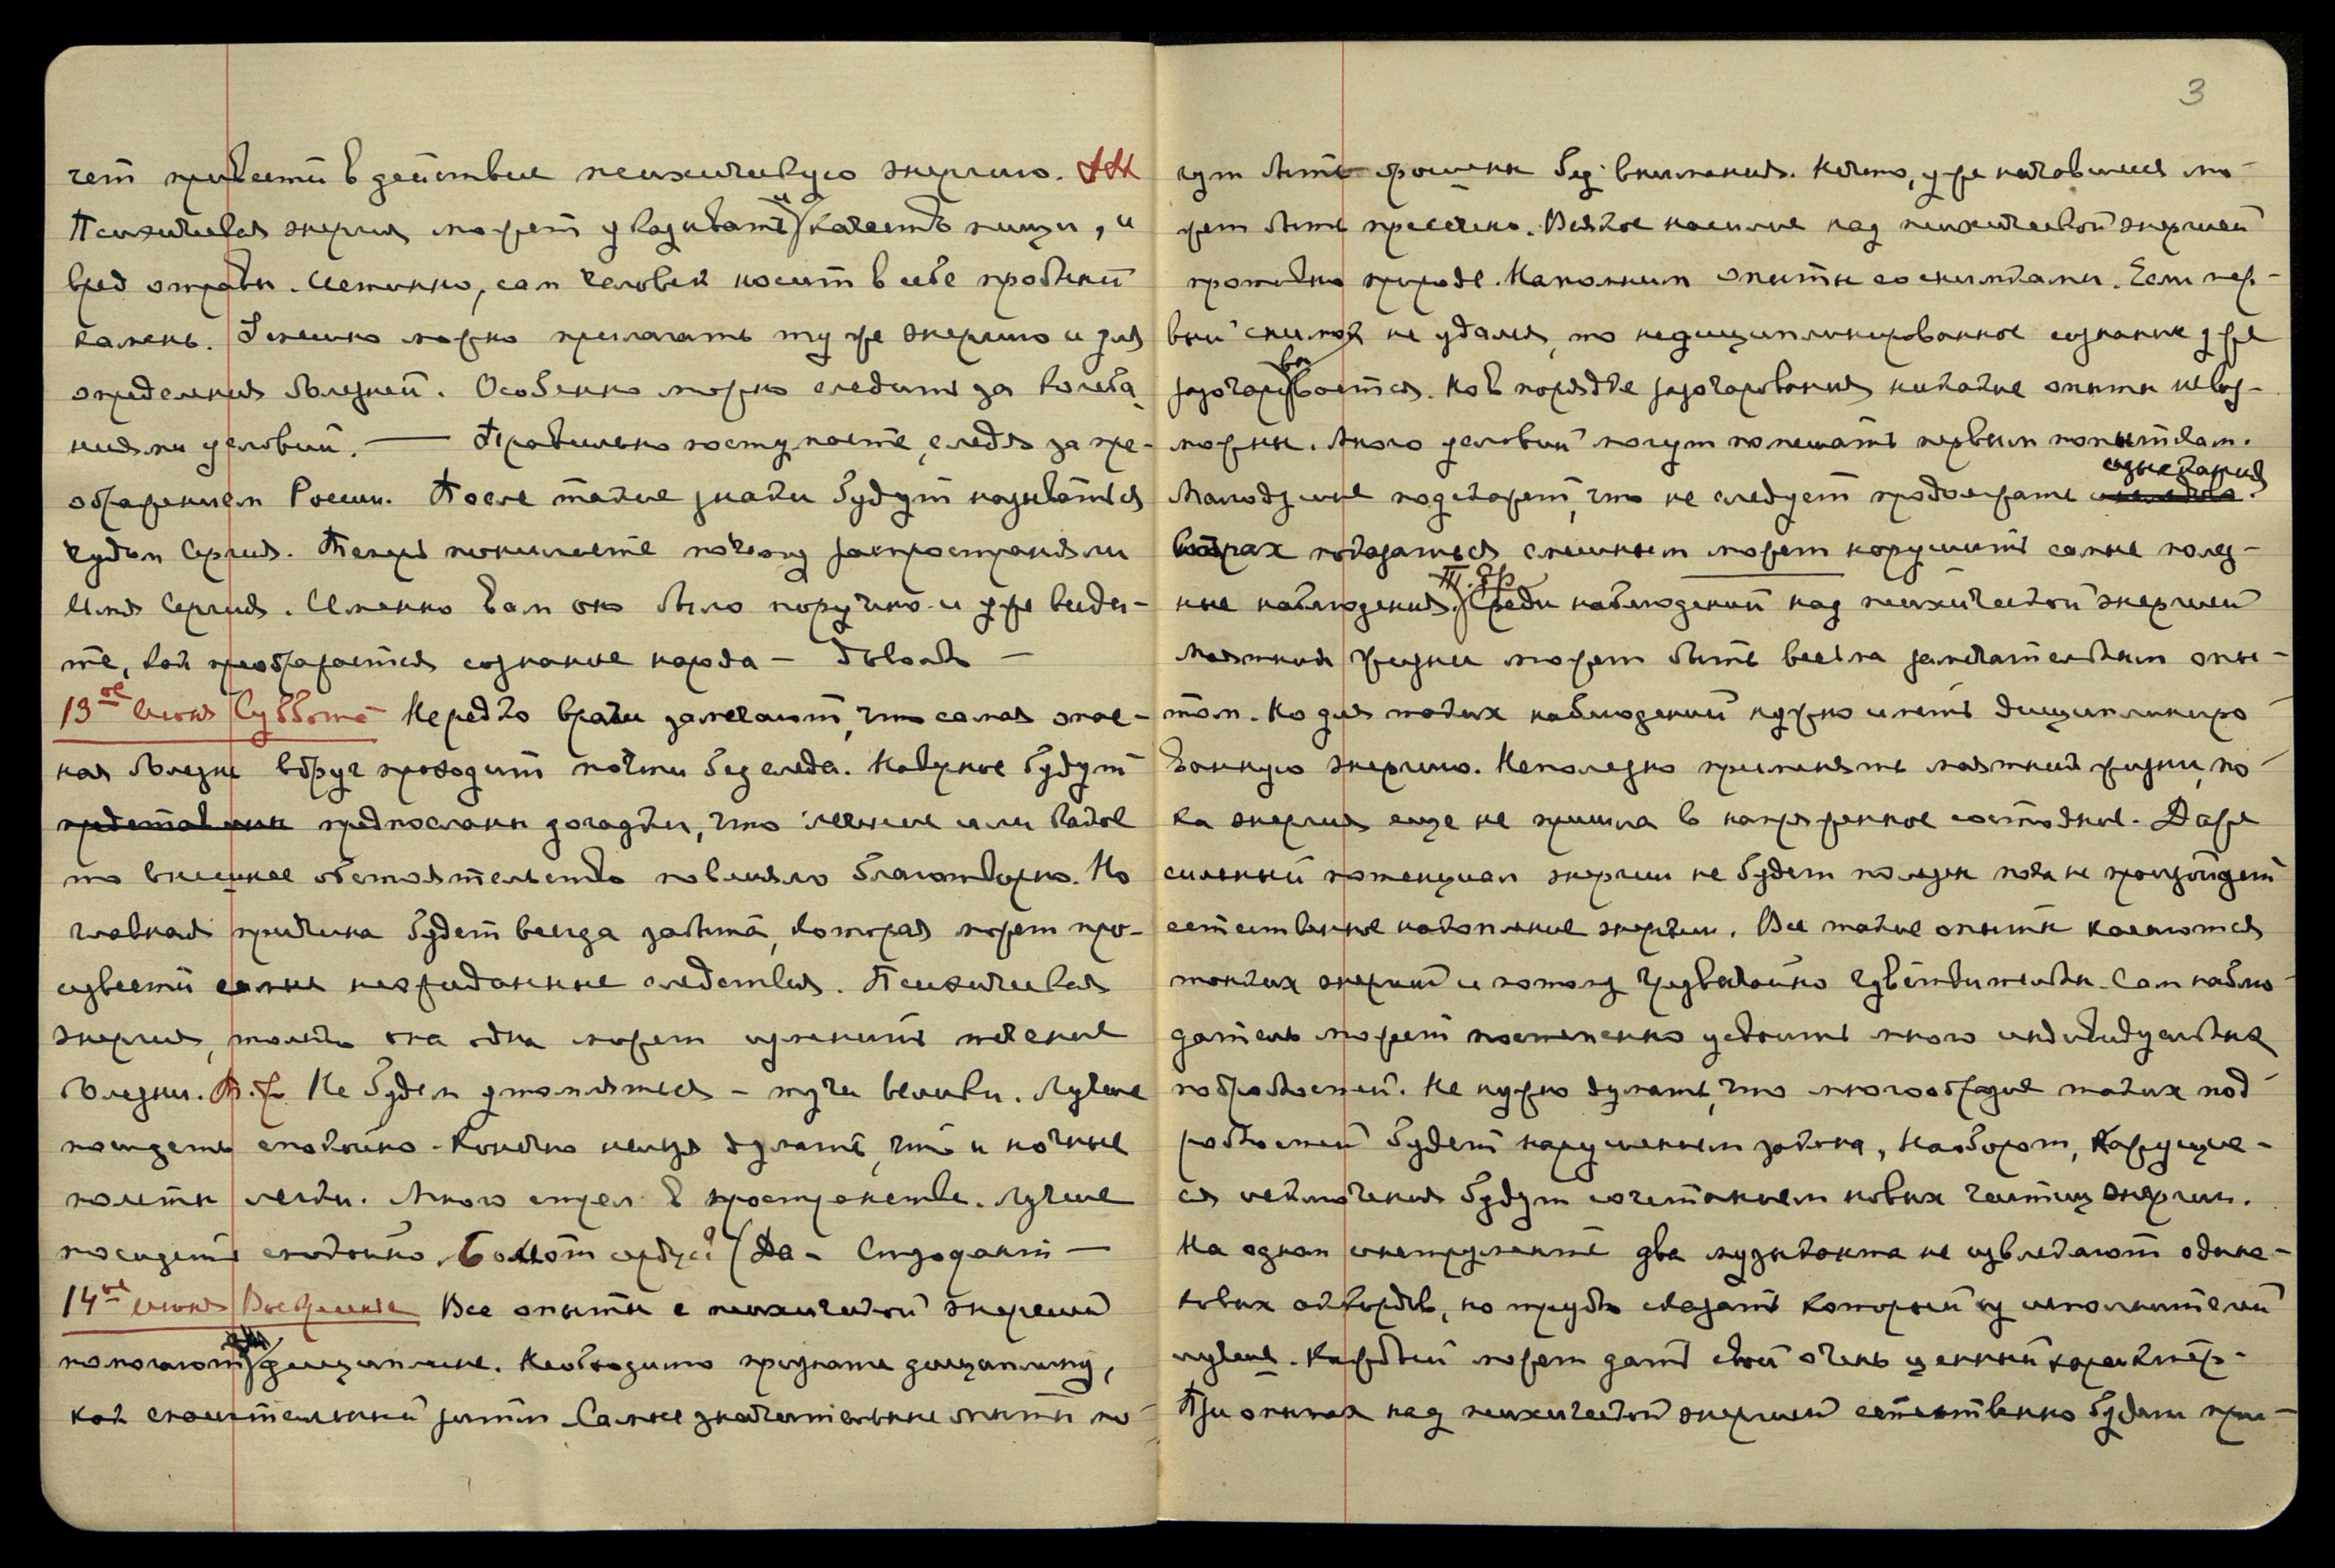 чет привести в действие психическую энергию.
Психическая энергия может указывать и качество пищи, и
вред отравы. Истинно, сам человек носит в себе пробный
камень. Успешно можно прилагать ту же энергию и для
определения болезней. Особенно можно следить за колеба
ниями условий. — Правильно поступаете, следя за пре-
ображением России. После такие знаки будут называться
чудом Сергия. Теперь понимаете почему распространяли
Имя Сергия. Именно Вам оно было поручено и уже види-
те, как преображается сознание народа —
13ое Июня Суббота Нередко врачи замечают, что самая опас-
ная болезнь вдруг проходит почти без следа. Наверное будут
предпосланы догадки, что лечение или какое
то внешнее обстоятельство повлияло благотворно. Но
главная причина будет всегда забыта, которая может про-
извести самые неожиданные следствия. Психическая
энергия, только она одна может изменить течение
болезни. Не будем утомляться – тучи велики. Лучше
посидеть спокойно. Конечно нельзя думать, что и ночные
полеты легки. Много стрел в пространстве. Лучше
посидеть спокойно. (Да –
14ое июня Воскресенье Все опыты с психической энергией
помогают дисциплине. Необходимо признать дисциплину,
как спасительный ритм. Самые значительные опыты мо-
3
гут быть брошены без внимания. Нечто, уже начавшееся мо-
жет быть пресечено. Всякое насилие над психической энергией
противно природе. Напомним опыты со снимками. Если пер-
вый снимок не удался, то недисциплинированное сознание уже
разочаровывается. Но в порядке разочарования никакие опыты невоз-
можны. Много условий могут помешать первым попыткам.
Малодушие подскажет, что не следует продолжать изыскания
Страх показаться смешным может нарушить самые полез-
ные наблюдения. Среди наблюдений над психической энергией
Маятник жизни может быть весьма замечательным опы-
том. Но для таких наблюдений нужно иметь дисциплиниро
ванную энергию. Неполезно применять маятник жизни, по
ка энергия еще не пришла в напряженное состояние. Даже
сильный потенциал энергии не будет полезен пока не произойдет
естественное накопление энергии. Все такие опыты касаются
тонких энергий и потому чрезвычайно чувствительны. Сам наблю-
датель может постепенно усвоить много индивидуальных
подробностей. Не нужно думать, что многообразие таких под
робностей будет нарушением закона, Наоборот, Кажущие-
ся исключения будут сочетанием новых частиц энергии.
На одном инструменте два музыканта не извлекают одина-
ковых аккордов, но трудно сказать который из исполнителей
лучше. Каждый может дать свой очень ценный характер.
При опытах над психической энергией естественно будем при-